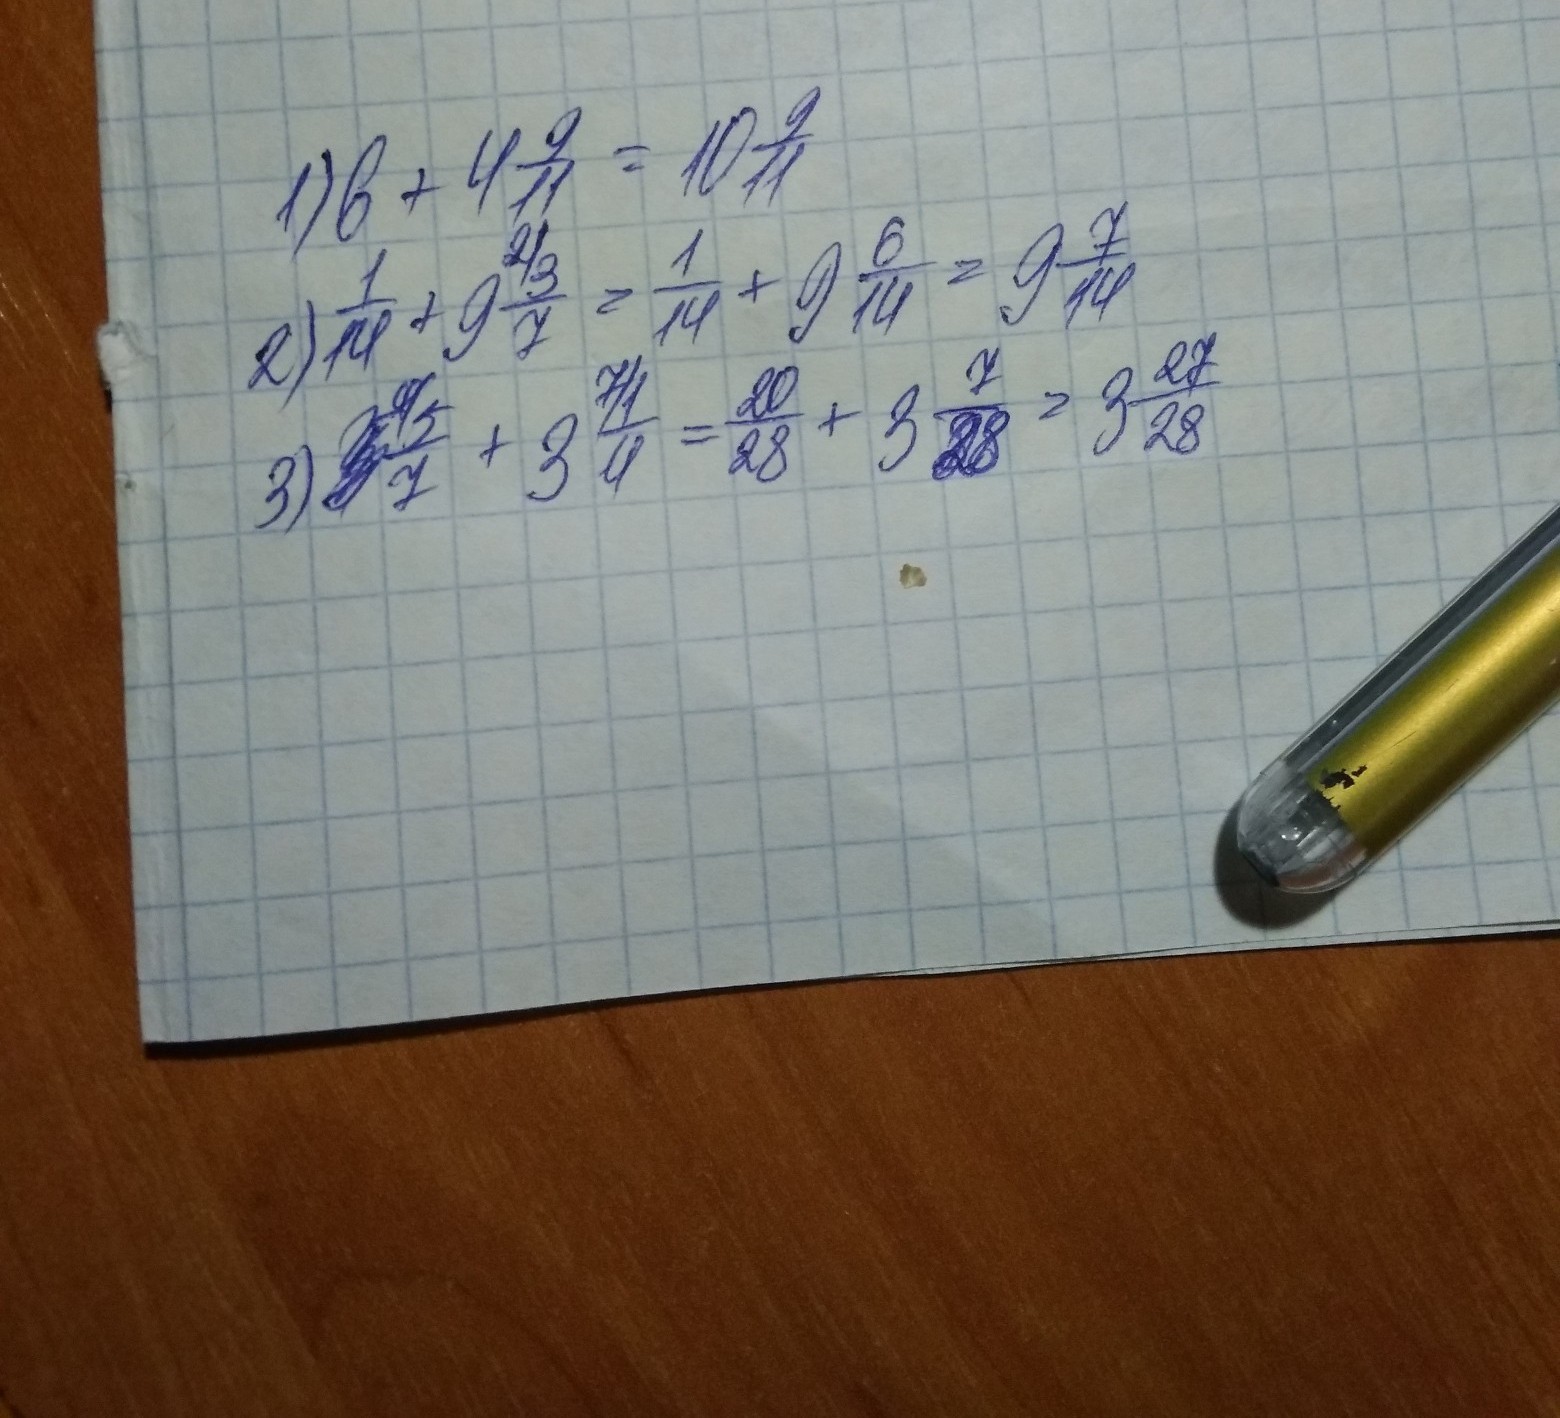 1) 6 + 4 9/11 = 10 9/11
2) 1/14 + 9 2/3/7 = 1/14 + 9 6/14 = 9 7/14
3) 4/5/7 + 3 7/1/4 = 20/28 + 3 7/28 = 3 27/28